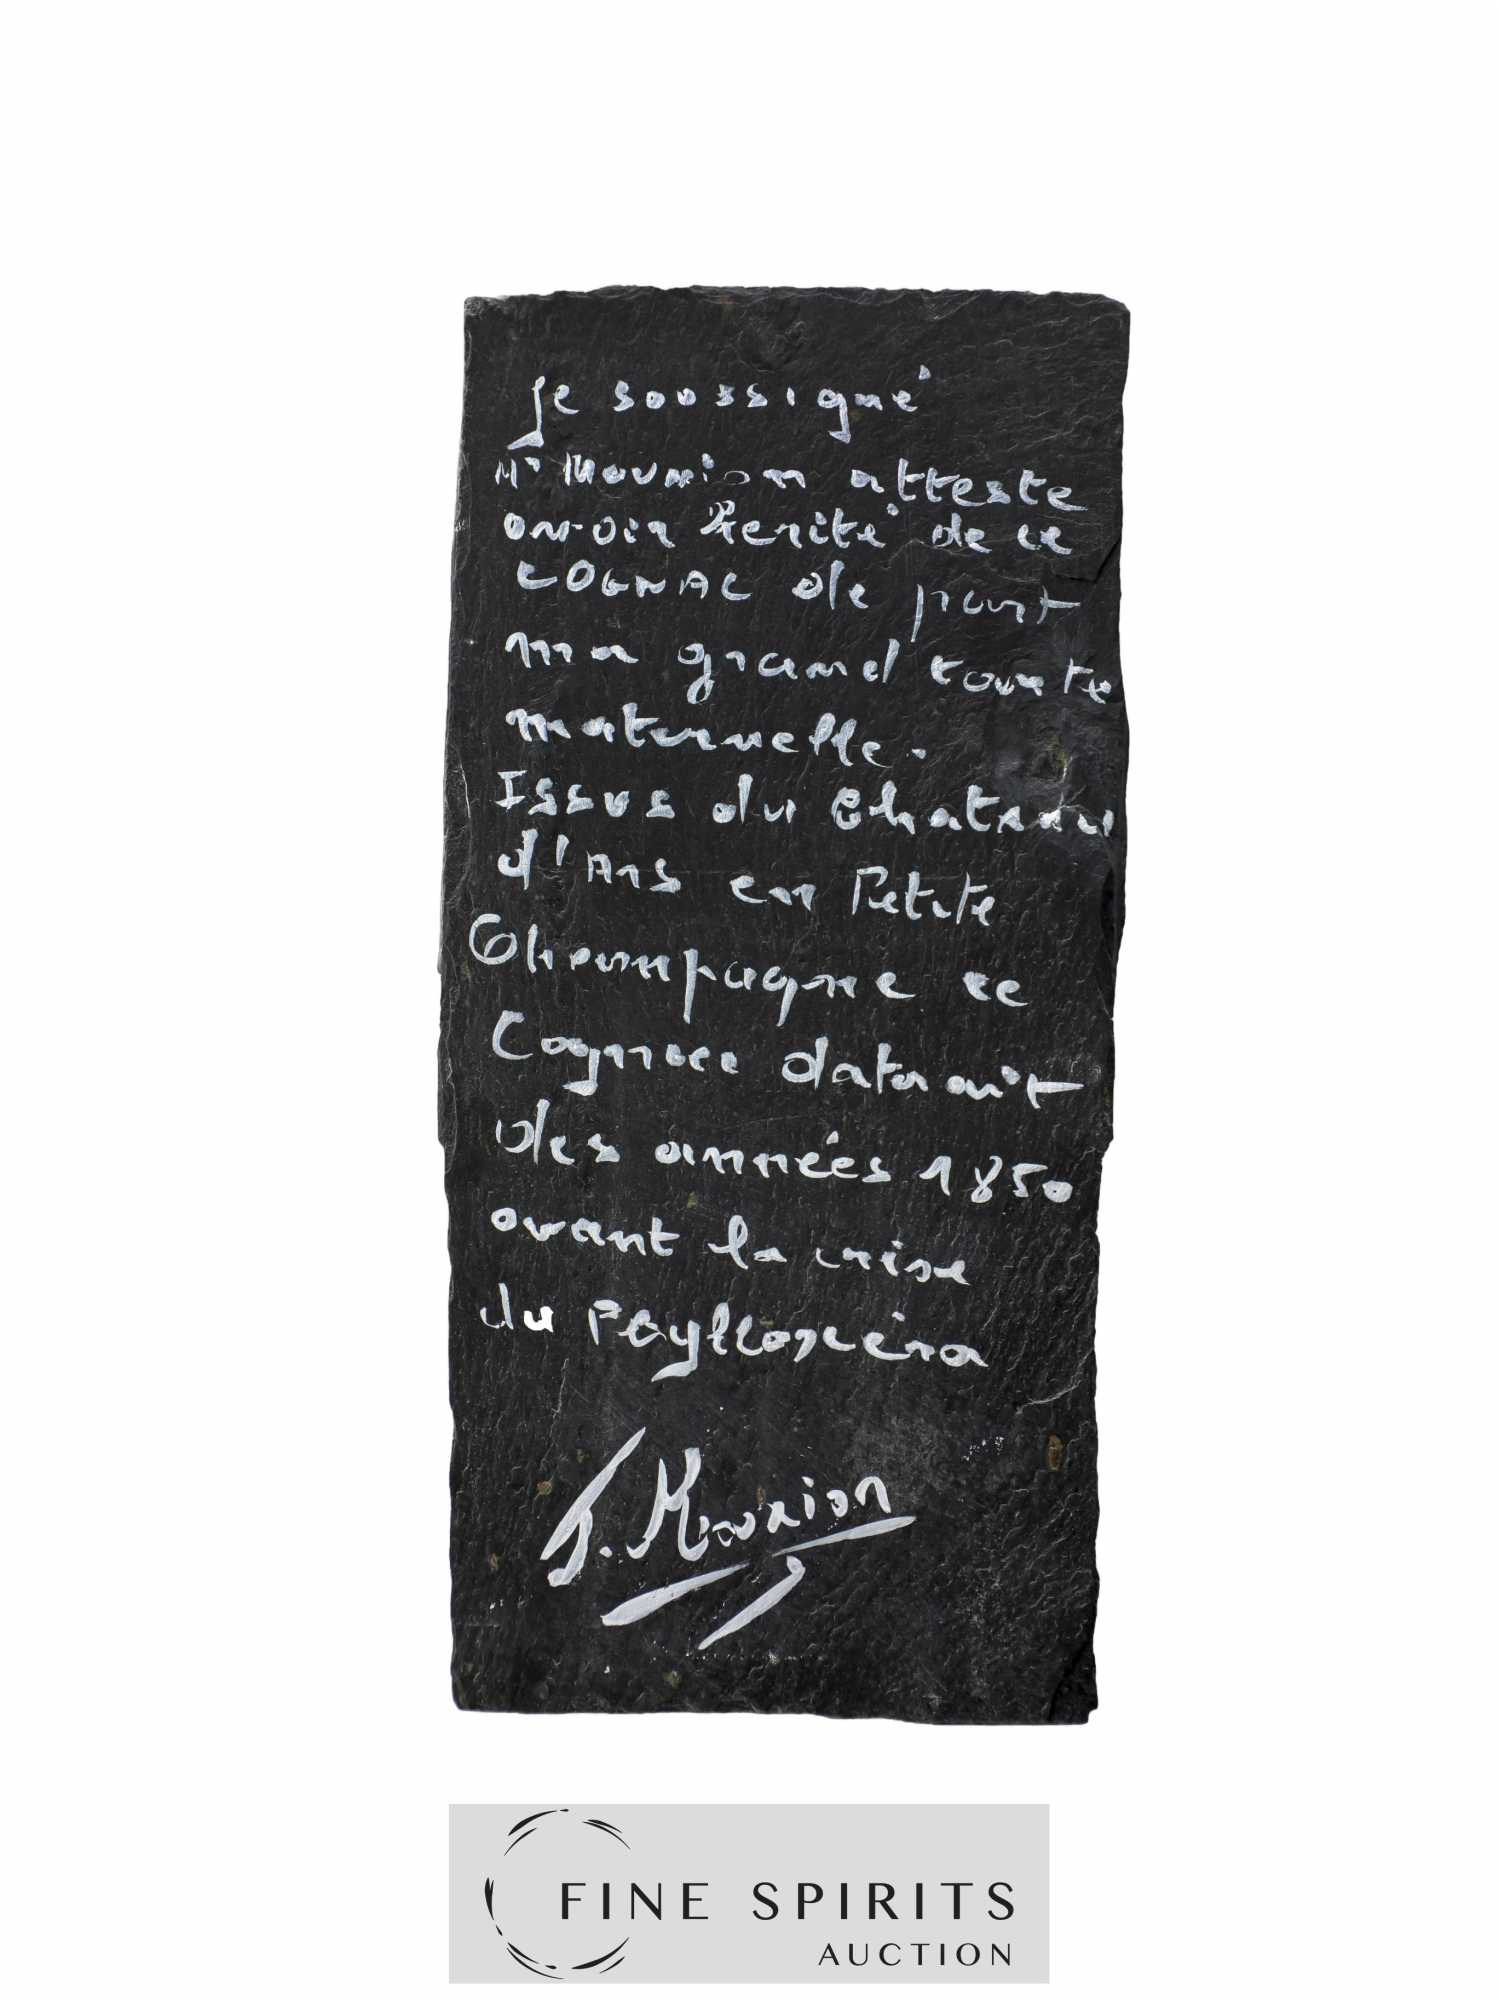 Je soussigné
Mr Mounion atteste
avoir hérité de ce
COGNAC de part
ma grand tante
maternelle.
Issus du Chateau
d'Ars en Petite
Champagne ce
Cognac datarait
des années 1850
avant la crise
du Phylloxéra
J. Mounion
FINE SPIRITS
AUCTION